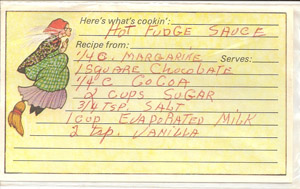 Here's what's cookin':
HOT FUDGE SAUCE
Recipe from:
Serves:
1/4 C. MARGARINE
1 SQUARE CHOCOLATE
1/4 C COCOA
2 CUPS SUGAR
3/4 TSP. SALT
1 CUP EVAPORATED MILK
2 tsp. VANILLA